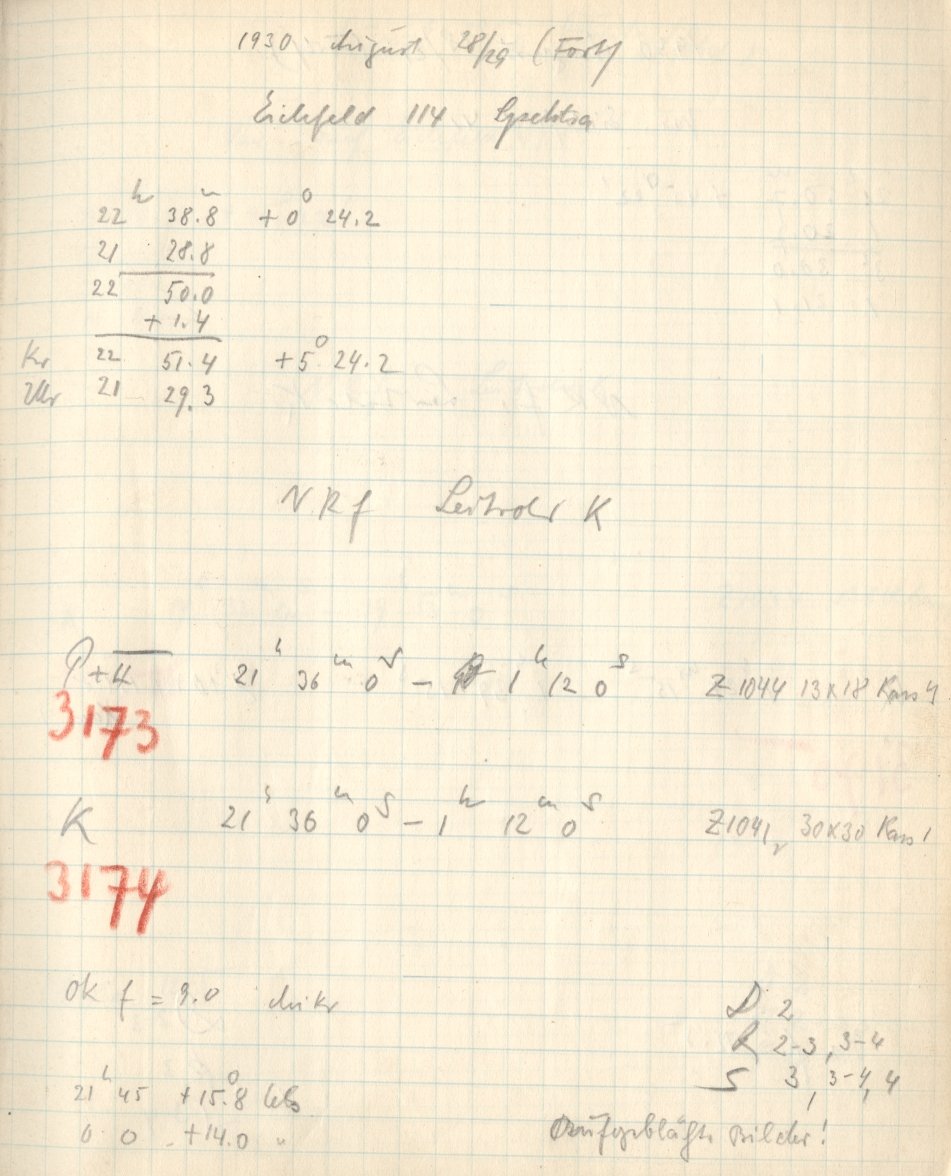 1930 August 28/29 (Forts)
Eichfeld 114 Spektra
22h 38.8m +0° 24.2
21 28.8
22 50.0
+1.4
Kr 22 51.4 +5° 24.2
Uhr 21 29.3
N.R.f Leitrohr K
P+K 21h 36m 0s - 1h 12 0s Z 1044 13x18 Kass 4
3173
K 21h 36m 0s - 1h 12m 0s Z1041 30x30 Kass 1
3174
Ok f = 9.0
D 2
R 2-3, 3-4
S 3, 3-4, 4
21h 45 +15.°8
0 0 +14.0 "
Aufgeblähte Bilder!